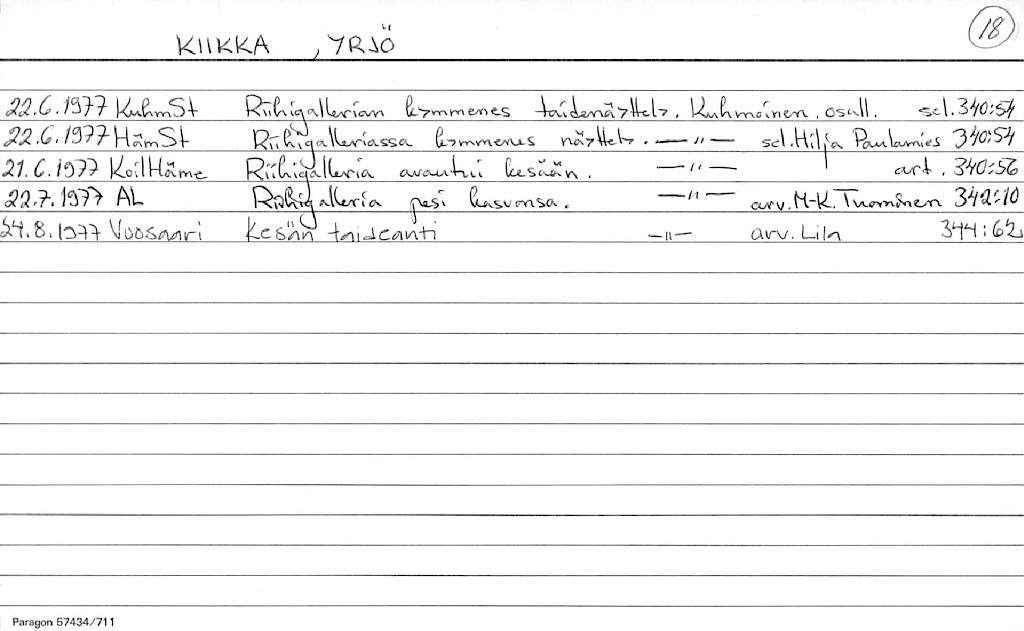 KIIKKA , YRJÖ
18
22.6.1977 KuhmSt Riihigallerian kymmenes taidenäyttely. Kuhmoinen. osall. sel. 340:54
22.6.1977 HämSt Riihigalleriassa kymmenes näyttely. —"— sel. Hilja Paulamies 340:54
21.6.1977 KoilHäme Riihigalleria avautui kesään. —"— art. 340:56
22.7.1977 AL Riihigalleria pesi kasvonsa. —"— arv. M-K. Tuominen 342:10
24.8.1977 Vuosaari Kesän taideanti —"— arv. Lila 344:62
Paragon 57434/711